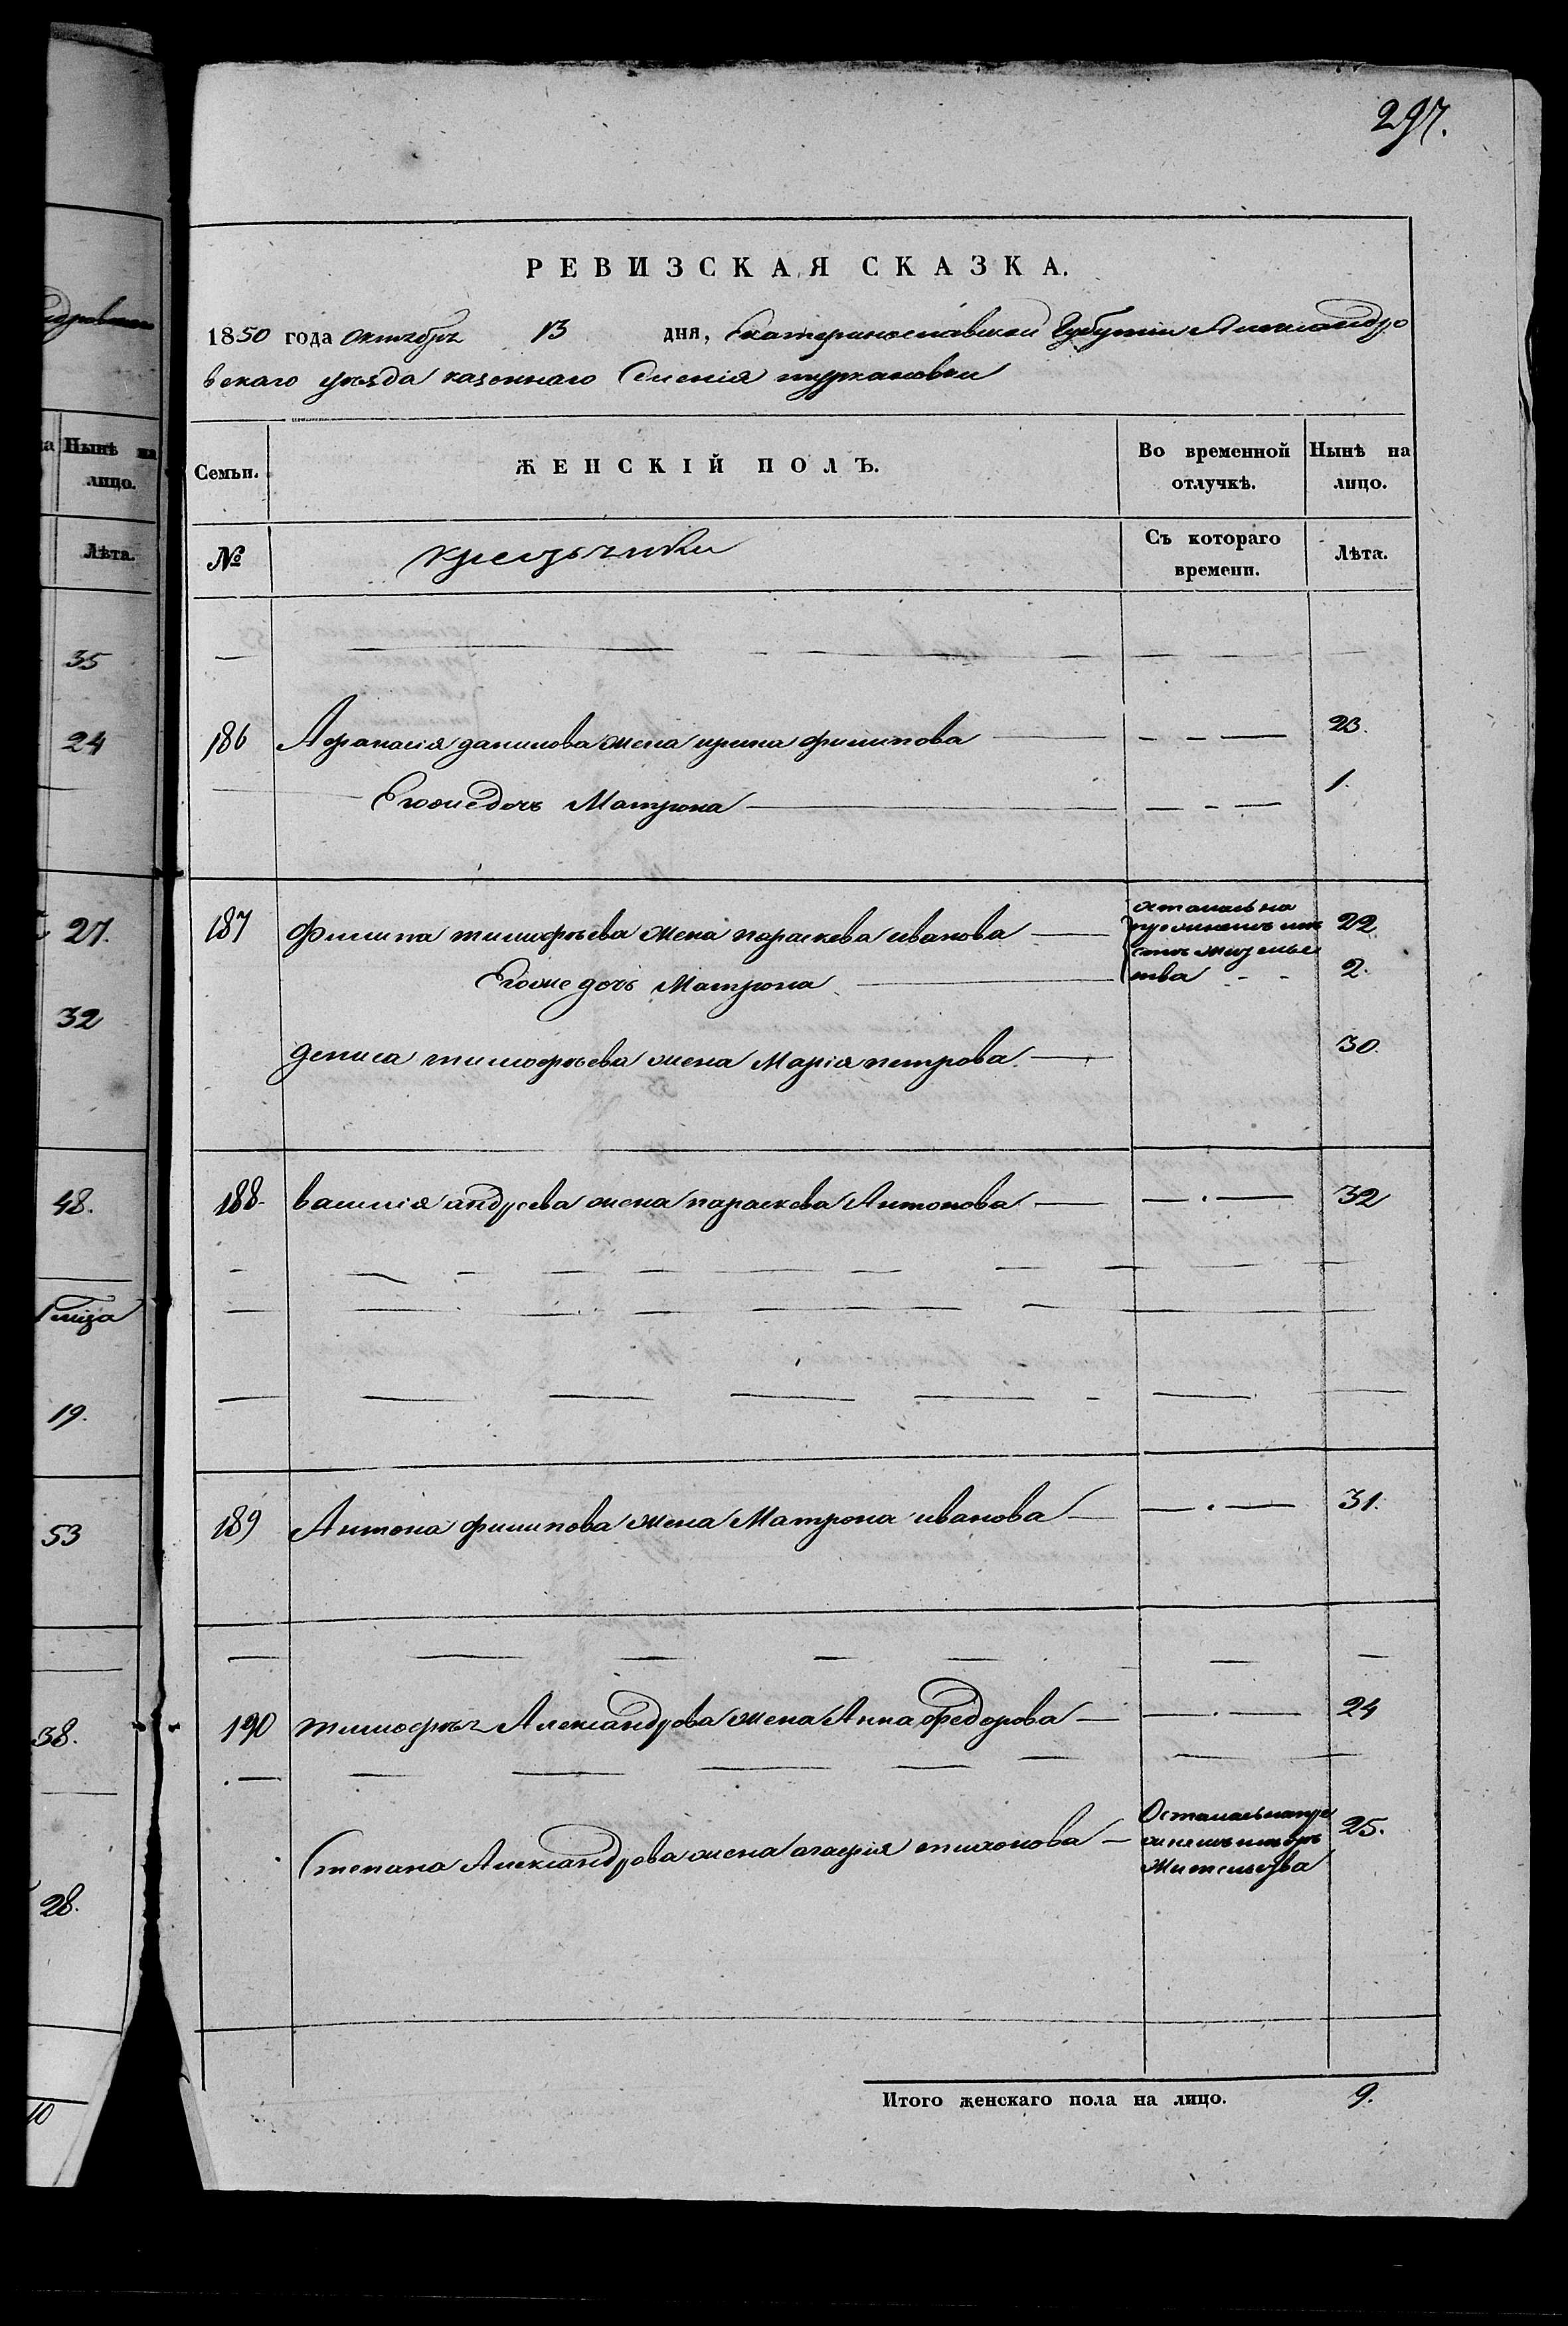 297.
РЕВИЗСКАЯ СКАЗКА.
1850 года октебръ 13 дня, Екатеринославской Губернии Александро
вскаго уѣзда казеннаго Селенія туркановки
Семьи.
ЖЕНСКІЙ ПОЛЪ.
Во временной отлучкѣ.
Нынѣ на лицо.
№
Съ котораго времени.
Лѣта.
186 Афанасія данилова жена ирина филипова 23.
Егоже дочь Матрона 1.
187 Филипа тимофѣева жена параскева иванова осталась на 22.
Егоже дочь Матрона 2.
дениса тимофѣева жена Марія петрова 30.
188. василія андреева жена параскева Антонова 32
189 Антона филипова жена Матрона иванова 31.
190 тимофѣя Александрова жена Анна Федорова 24
Степана Александрова жена агафія тихонова 25.
Жительства
Итого женскаго пола на лицо. 9.
Нынѣ на
лицо.
Лѣта.
35
24
27.
32
48.
19.
53
38.
28.
10